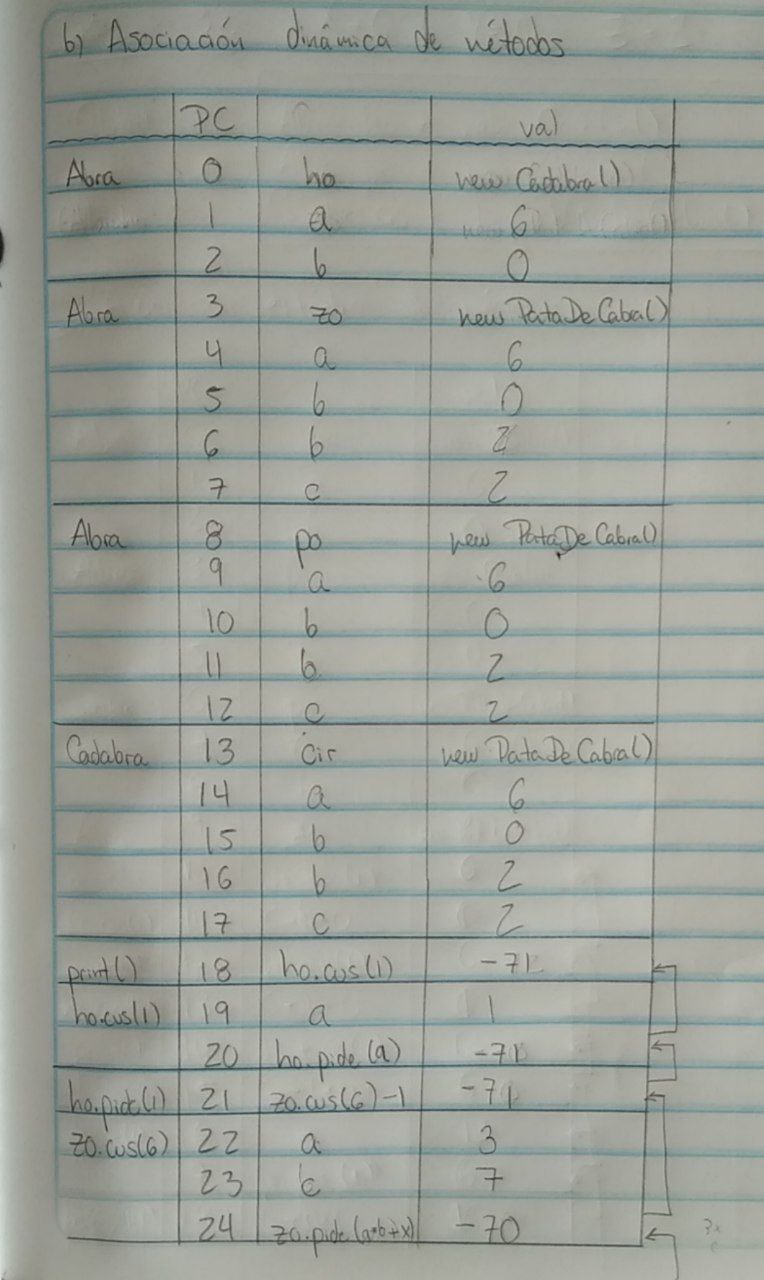 b) Asociación dinámica de métodos
PC val
Abra 0 ho new Cadabra()
1 a 6
2 b 0
Abra 3 zo new PataDeCabra()
4 a 6
5 b 0
6 b 2
7 c 2
Abra 8 po new PataDeCabra()
9 a 6
10 b 0
11 b 2
12 c 2
Cadabra 13 cir new PataDeCabra()
14 a 6
15 b 0
16 b 2
17 c 2
print() 18 ho.cus(1) -71
ho.cus(1) 19 a 1
20 ho.pide(a) -71
ho.pide(1) 21 zo.cus(6)-1 -71
zo.cus(6) 22 a 3
23 b 7
24 zo.pide(a*b+x) -70